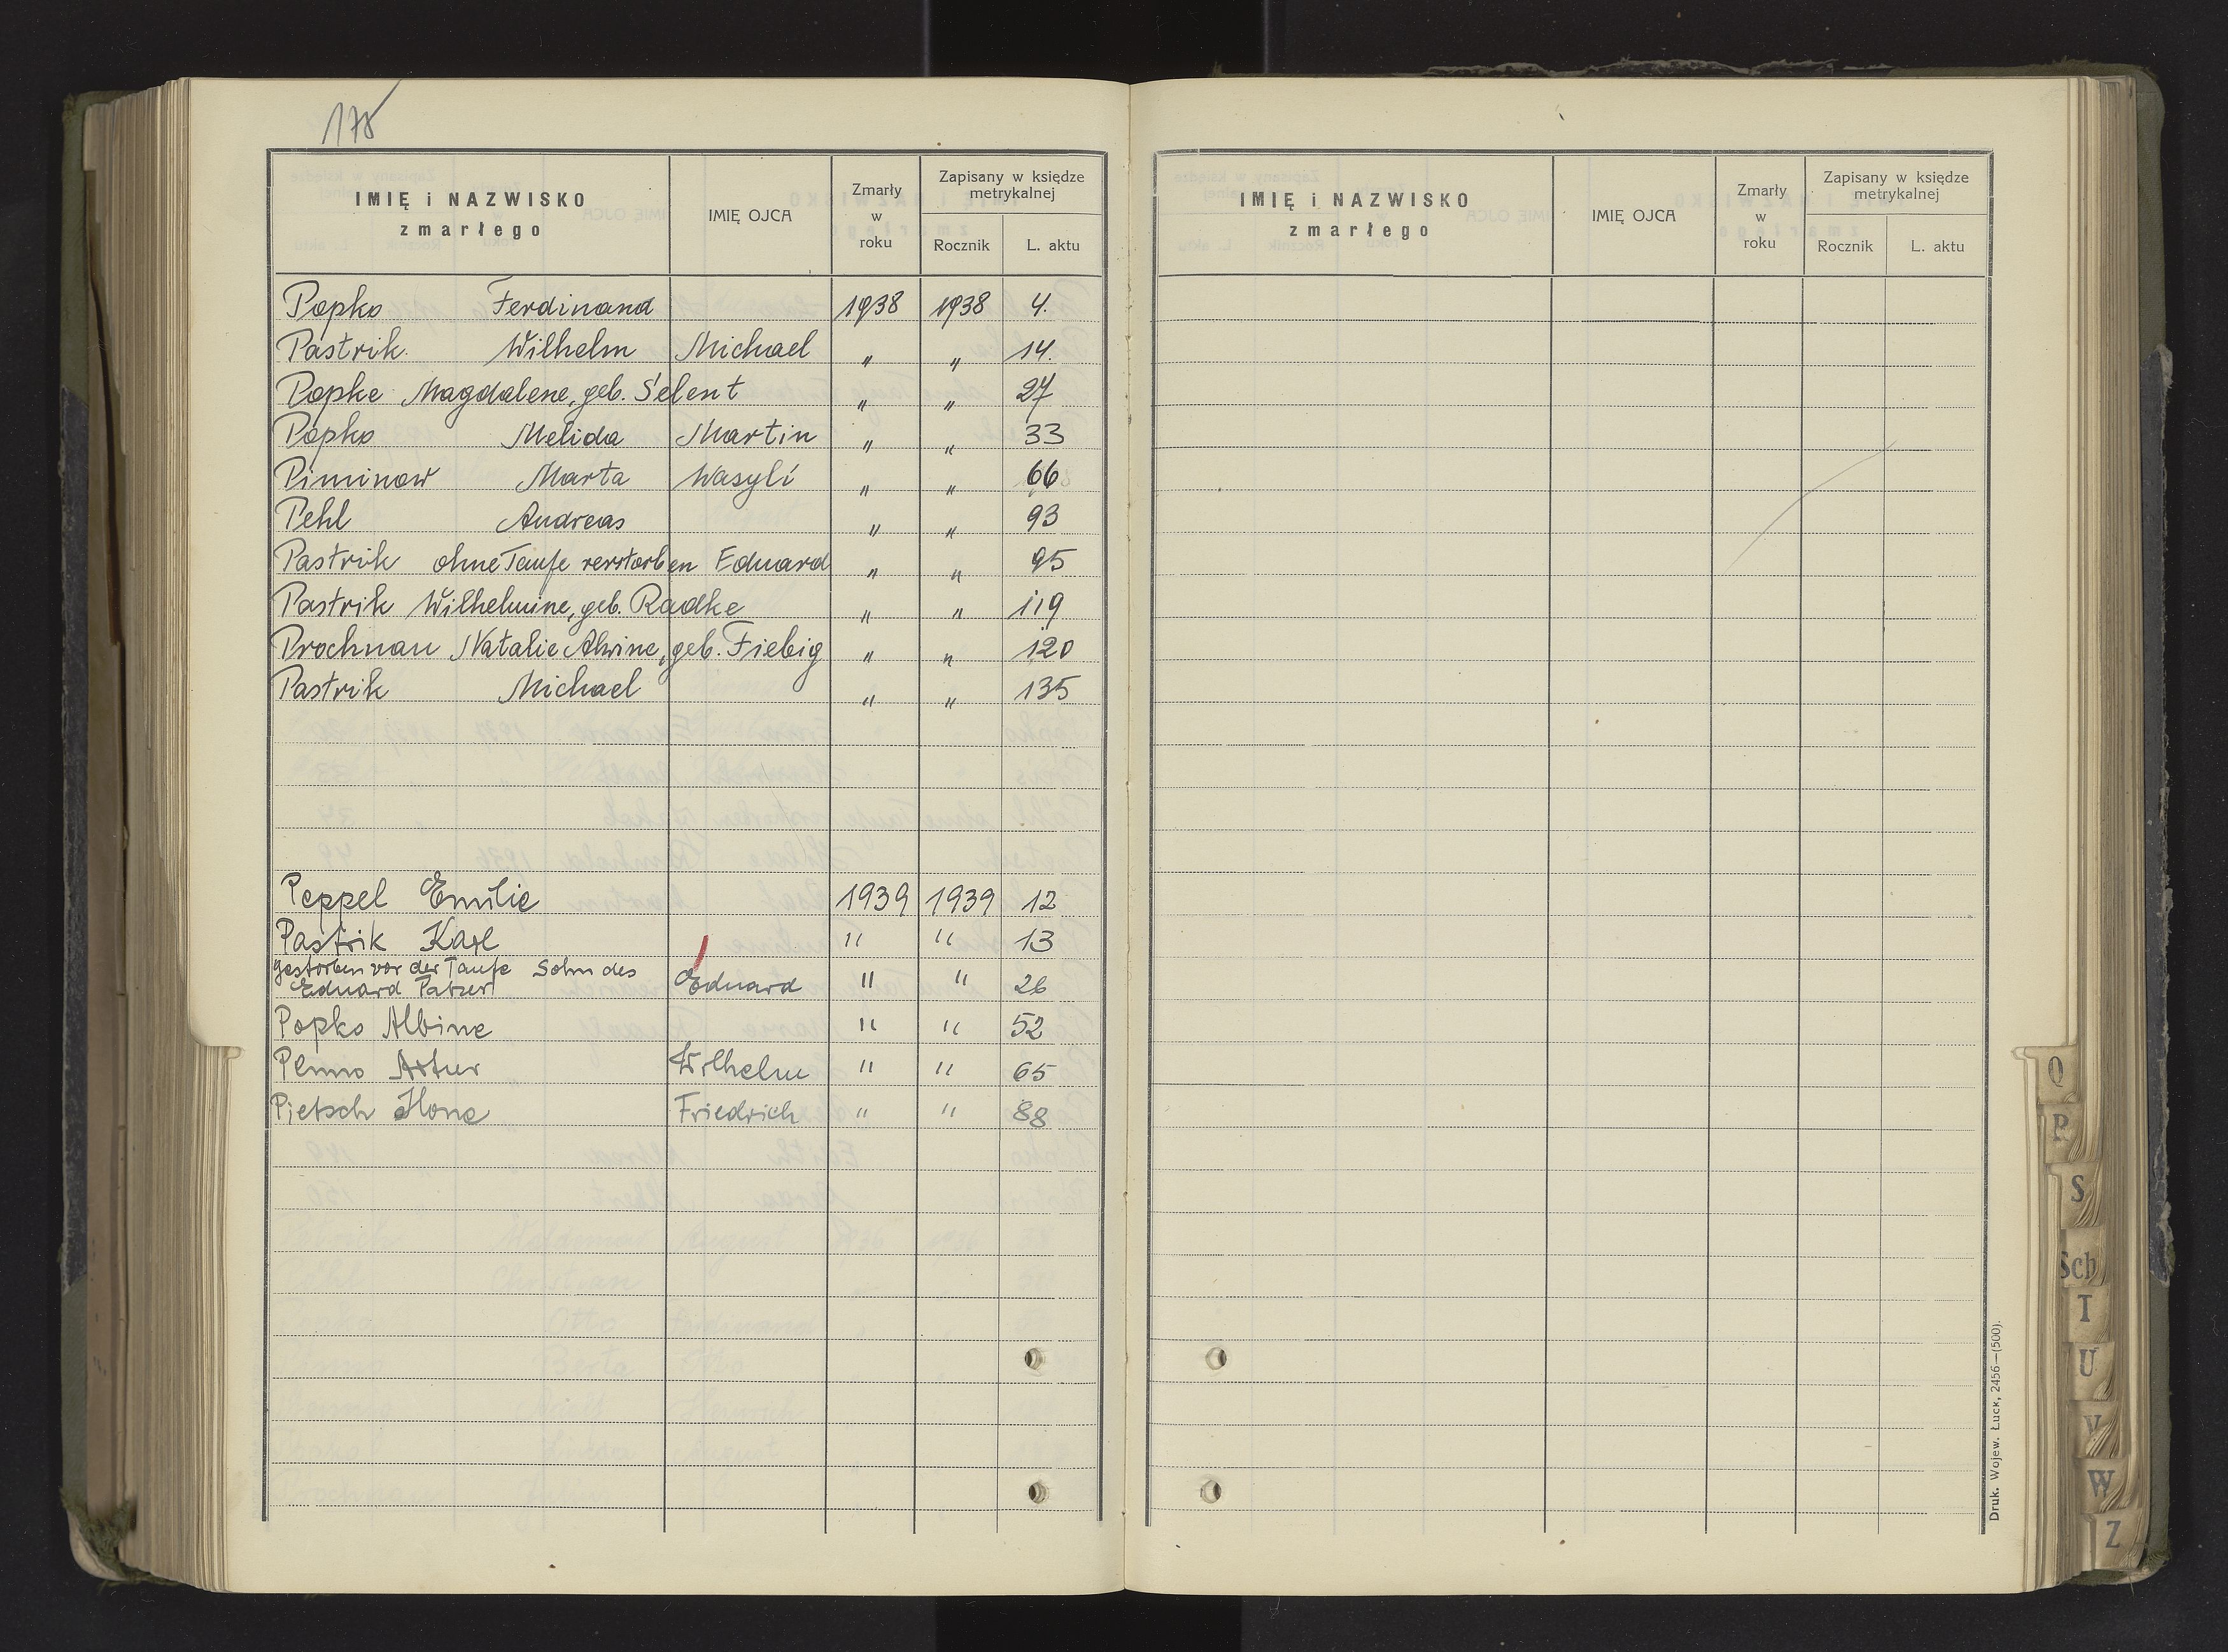 178
IMIĘ i NAZWISKO
zmarłego
IMIĘ OJCA
Zmarły
w
roku
Zapisany w księdze
metrykalnej
Rocznik
L. aktu
Popko Ferdinand 1938 1938 4.
Pastrik Wilhelm Michael " " 14.
Popke Magdalene, geb. Selent " " 27
Popko Melida Martin " " 33
Piminow Marta Wasyli " " 66
Pehl Andreas " " 93
Pastrik ohne Taufe verstorben Eduard " " 95
Pastrik Wilhelmine, geb. Radke " " 119
Prochnau Natalie Alwine, geb. Fiebig " " 120
Pastrik Michael " " 135
Peppel Emilie 1939 1939 12
Pastrik Karl " " 13
gestorben vor der Taufe Sohn des
Eduard Patzer Eduard " " 26
Popko Albine " " 52
Artur Wilhelm " " 65
Pietsch Ilone Friedrich " " 88
IMIĘ i NAZWISKO
zmarłego
IMIĘ OJCA
Zmarły
w
roku
Zapisany w księdze
metrykalnej
Rocznik
L. aktu
Druk. Wojew. Łuck, 2456—(500).
Q
R
S
Sch
T
U
V
W
Z